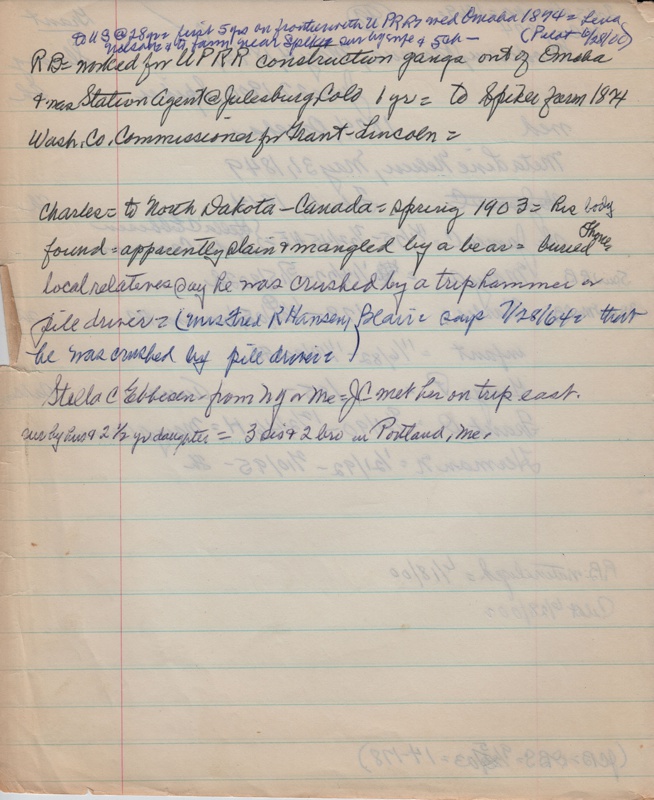 to US @ 28 yrs = first 5 yrs on frontier with UPRR = wed Omaha 1874 = Lena
Nelson = to farm near Spiker sur by wife & 5 ch — (Pilot 4/28/00)
RB = worked for UPRR construction gangs out of Omaha
& was Station Agent @ Julesburg, Colo 1 yr = to Spiker farm 1874
Wash. Co. Commissioner for Grant - Lincoln =
Charles = to North Dakota — Canada = spring 1903 = his body
found = apparently slain & mangled by a bear = buried there =
local relatives say he was crushed by a triphammer or
pile driver = (mrs Fred R Hansen, Blair = says 7/28/64 = that
he was crushed by pile driver = )
Stella C Ebbesen - from NY or Me = JC met her on trip east.
sur by hus & 2 1/2 yr daughter = 3 sis & 2 bro in Portland, Me.